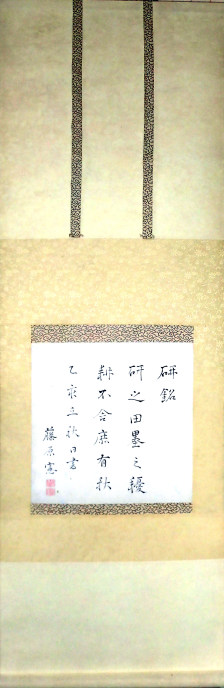 研銘
研之田墨之穫
耕不舍庶有秋
乙亥立秋日書
藤原憲